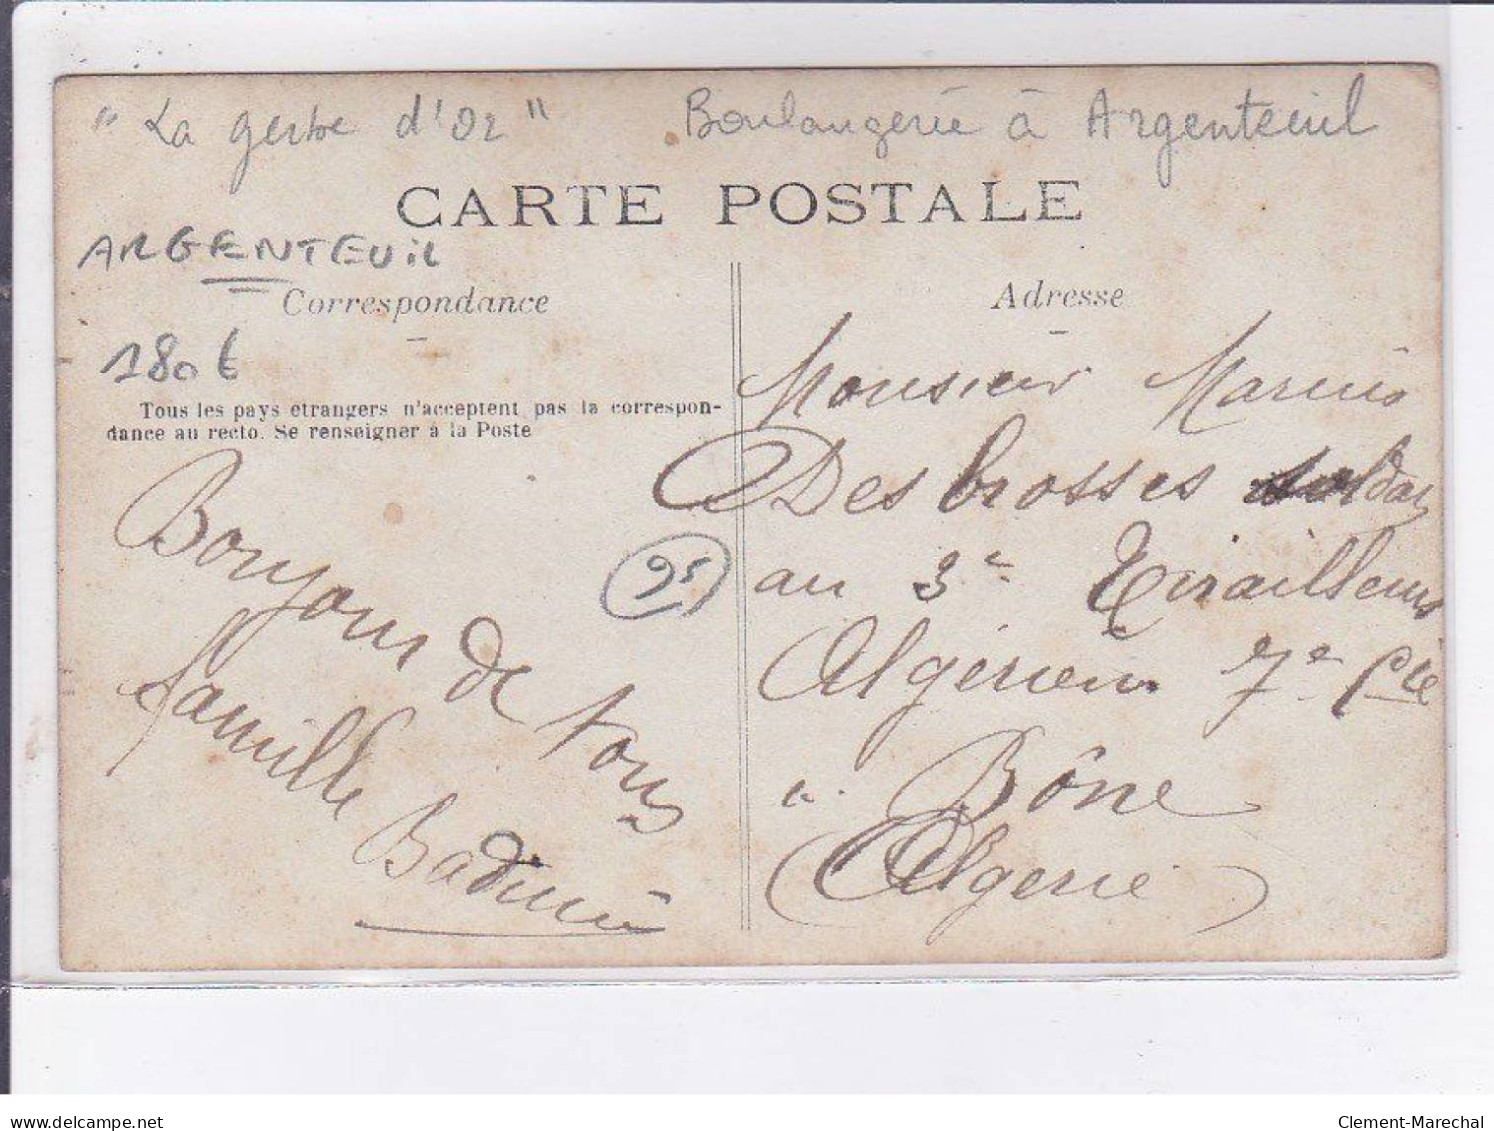 "La gerbe d'Or" Boulangerie à Argenteuil
CARTE POSTALE
ARGENTEUIL
Correspondance
180€
Tous les pays etrangers n'acceptent pas la correspon-
dance au recto. Se renseigner à la Poste
Bonjour de tous
famille
95
Adresse
Monsieur Marius
Desbrosses soldat
au 3e Tirailleurs
Algérien 7e Cie
a Bône
Algerie
delcampe.net
Clement-Marechal